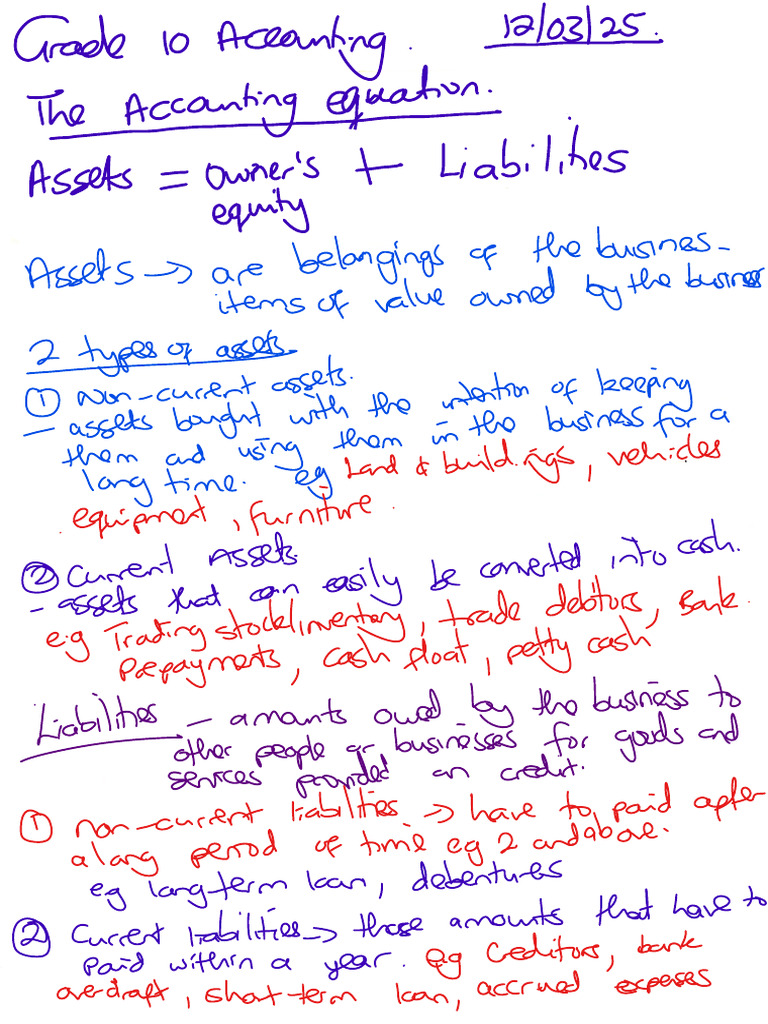 Grade 10 Accounting. 12/03/25.
The Accounting equation.
Assets = owner's + Liabilities
equity
Assets → are belongings of the busines -
items of value owned by the business
2 types of assets
① Non-current assets.
- assets bought with the intention of keeping
them and using them in the business for a
long time. eg Land & buildings, vehicles
equipment, furniture.
② Current Assets.
- assets that can easily be converted into cash.
e.g Trading stock/inventory, trade debtors, Bank.
Prepayments, cash float, petty cash
Liabilities - amounts owed by the business to
other people or businesses for goods and
services provided on credit.
① non-current liabilties → have to paid after
a long period of time eg 2 and above.
eg long-term loan, debentures
② Current liabilities → those amounts that have to
paid within a year. e.g Creditors, bank
overdraft, short-term loan, accrued expeses